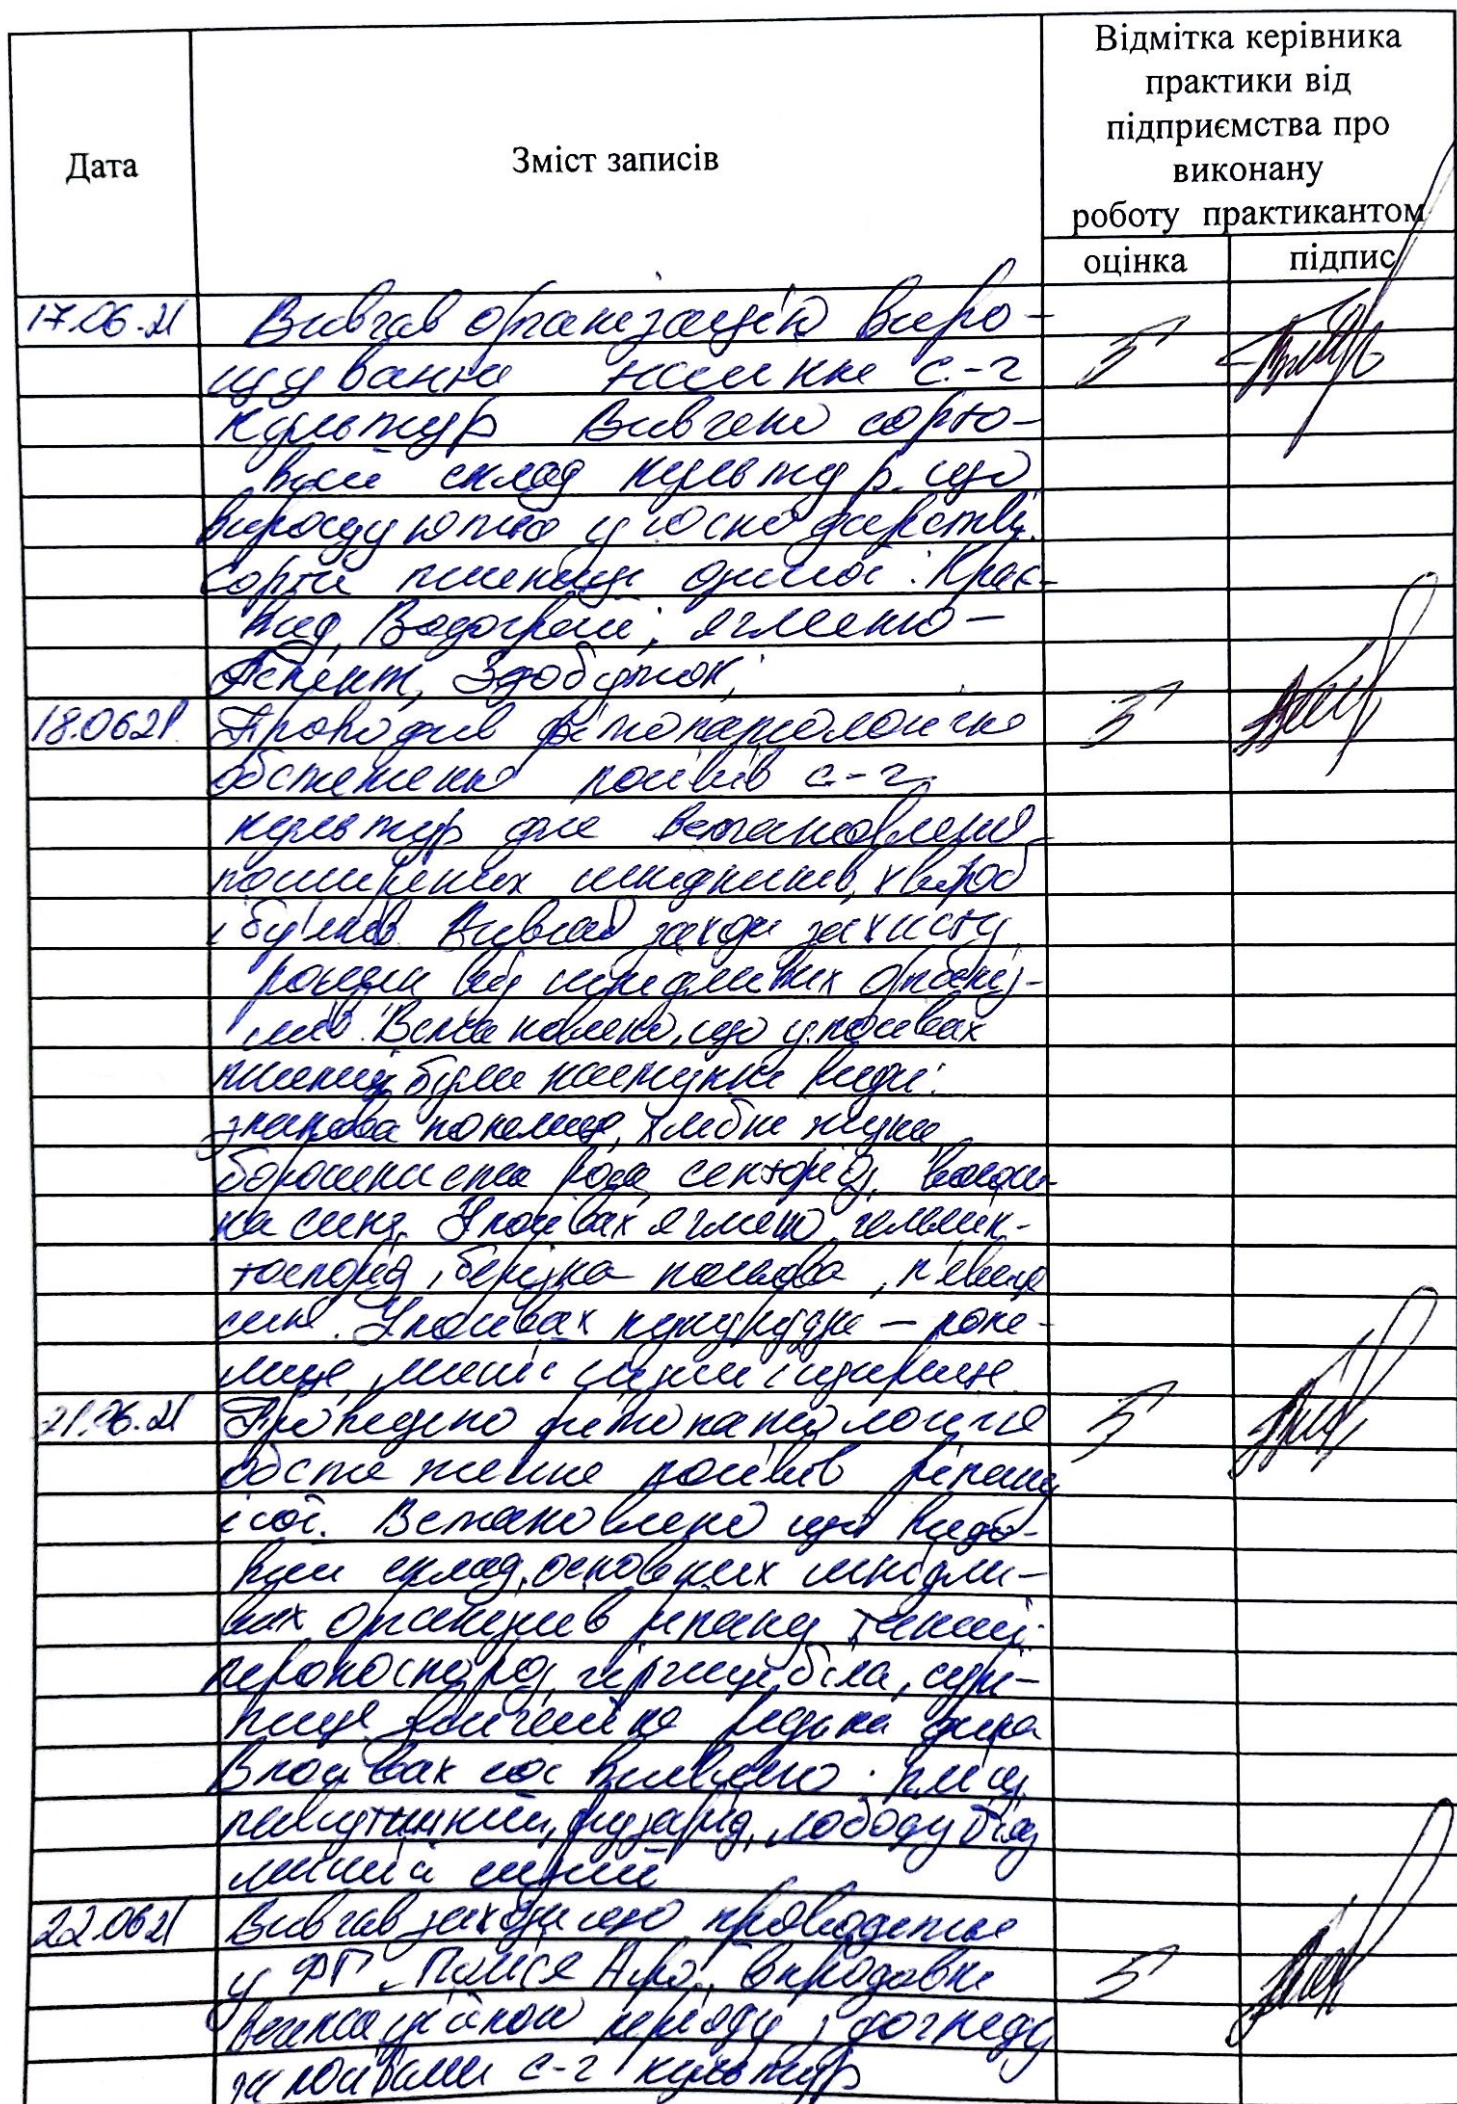 Дата
Зміст записів
Відмітка керівника
практики від
підприємства про
виконану
роботу практикантом
оцінка
підпис
17.06.21 Вивчав організацію виро-
щування насіння с.-г 5
культур Вивчено сорто-
вий склад культур, що
вирощуються у господарстві.
Сорти пшениці озимої: Крає-
вид, Водограй; ячменю -
Аспект, Здобуток;
18.0621 Проводив фітопатологічне 5
обстеження посівів с-г.
культур для встановлення
поширених шкідників, хвороб
і бур'янів. Вивчав заходи захисту
рослин від шкідливих організ-
мів. Встановлено, що у посівах
пшениці були наступні види:
злакова попелиця, хлібні жуки
борошниста роса, септоріоз, волош-
ка синя. У посівах ячменю гельмін-
тоспоріоз, берізка польова, п'явиця
синя. У посівах кукурудзи - попе-
лиця, мишій сизий і щириця.
21.06.21 Проведено фітопатологічне 5
обстеження посівів ріпаку
і сої. Встановлено що видо-
вий склад основних шкідли-
вих організмів ріпаку такий:
пероноспороз, гірчиця біла, сурі-
пиця звичайна редька дика
В посівах сої виявлено: кліщ
павутинний, фузаріоз, лободу білу
мишій сизий
22.0621 Вивчав заходи що проводяться
у ФГ „Полісся Агро" впродовж 5
вегетаційного періоду з догляду
за посівами с-г культур